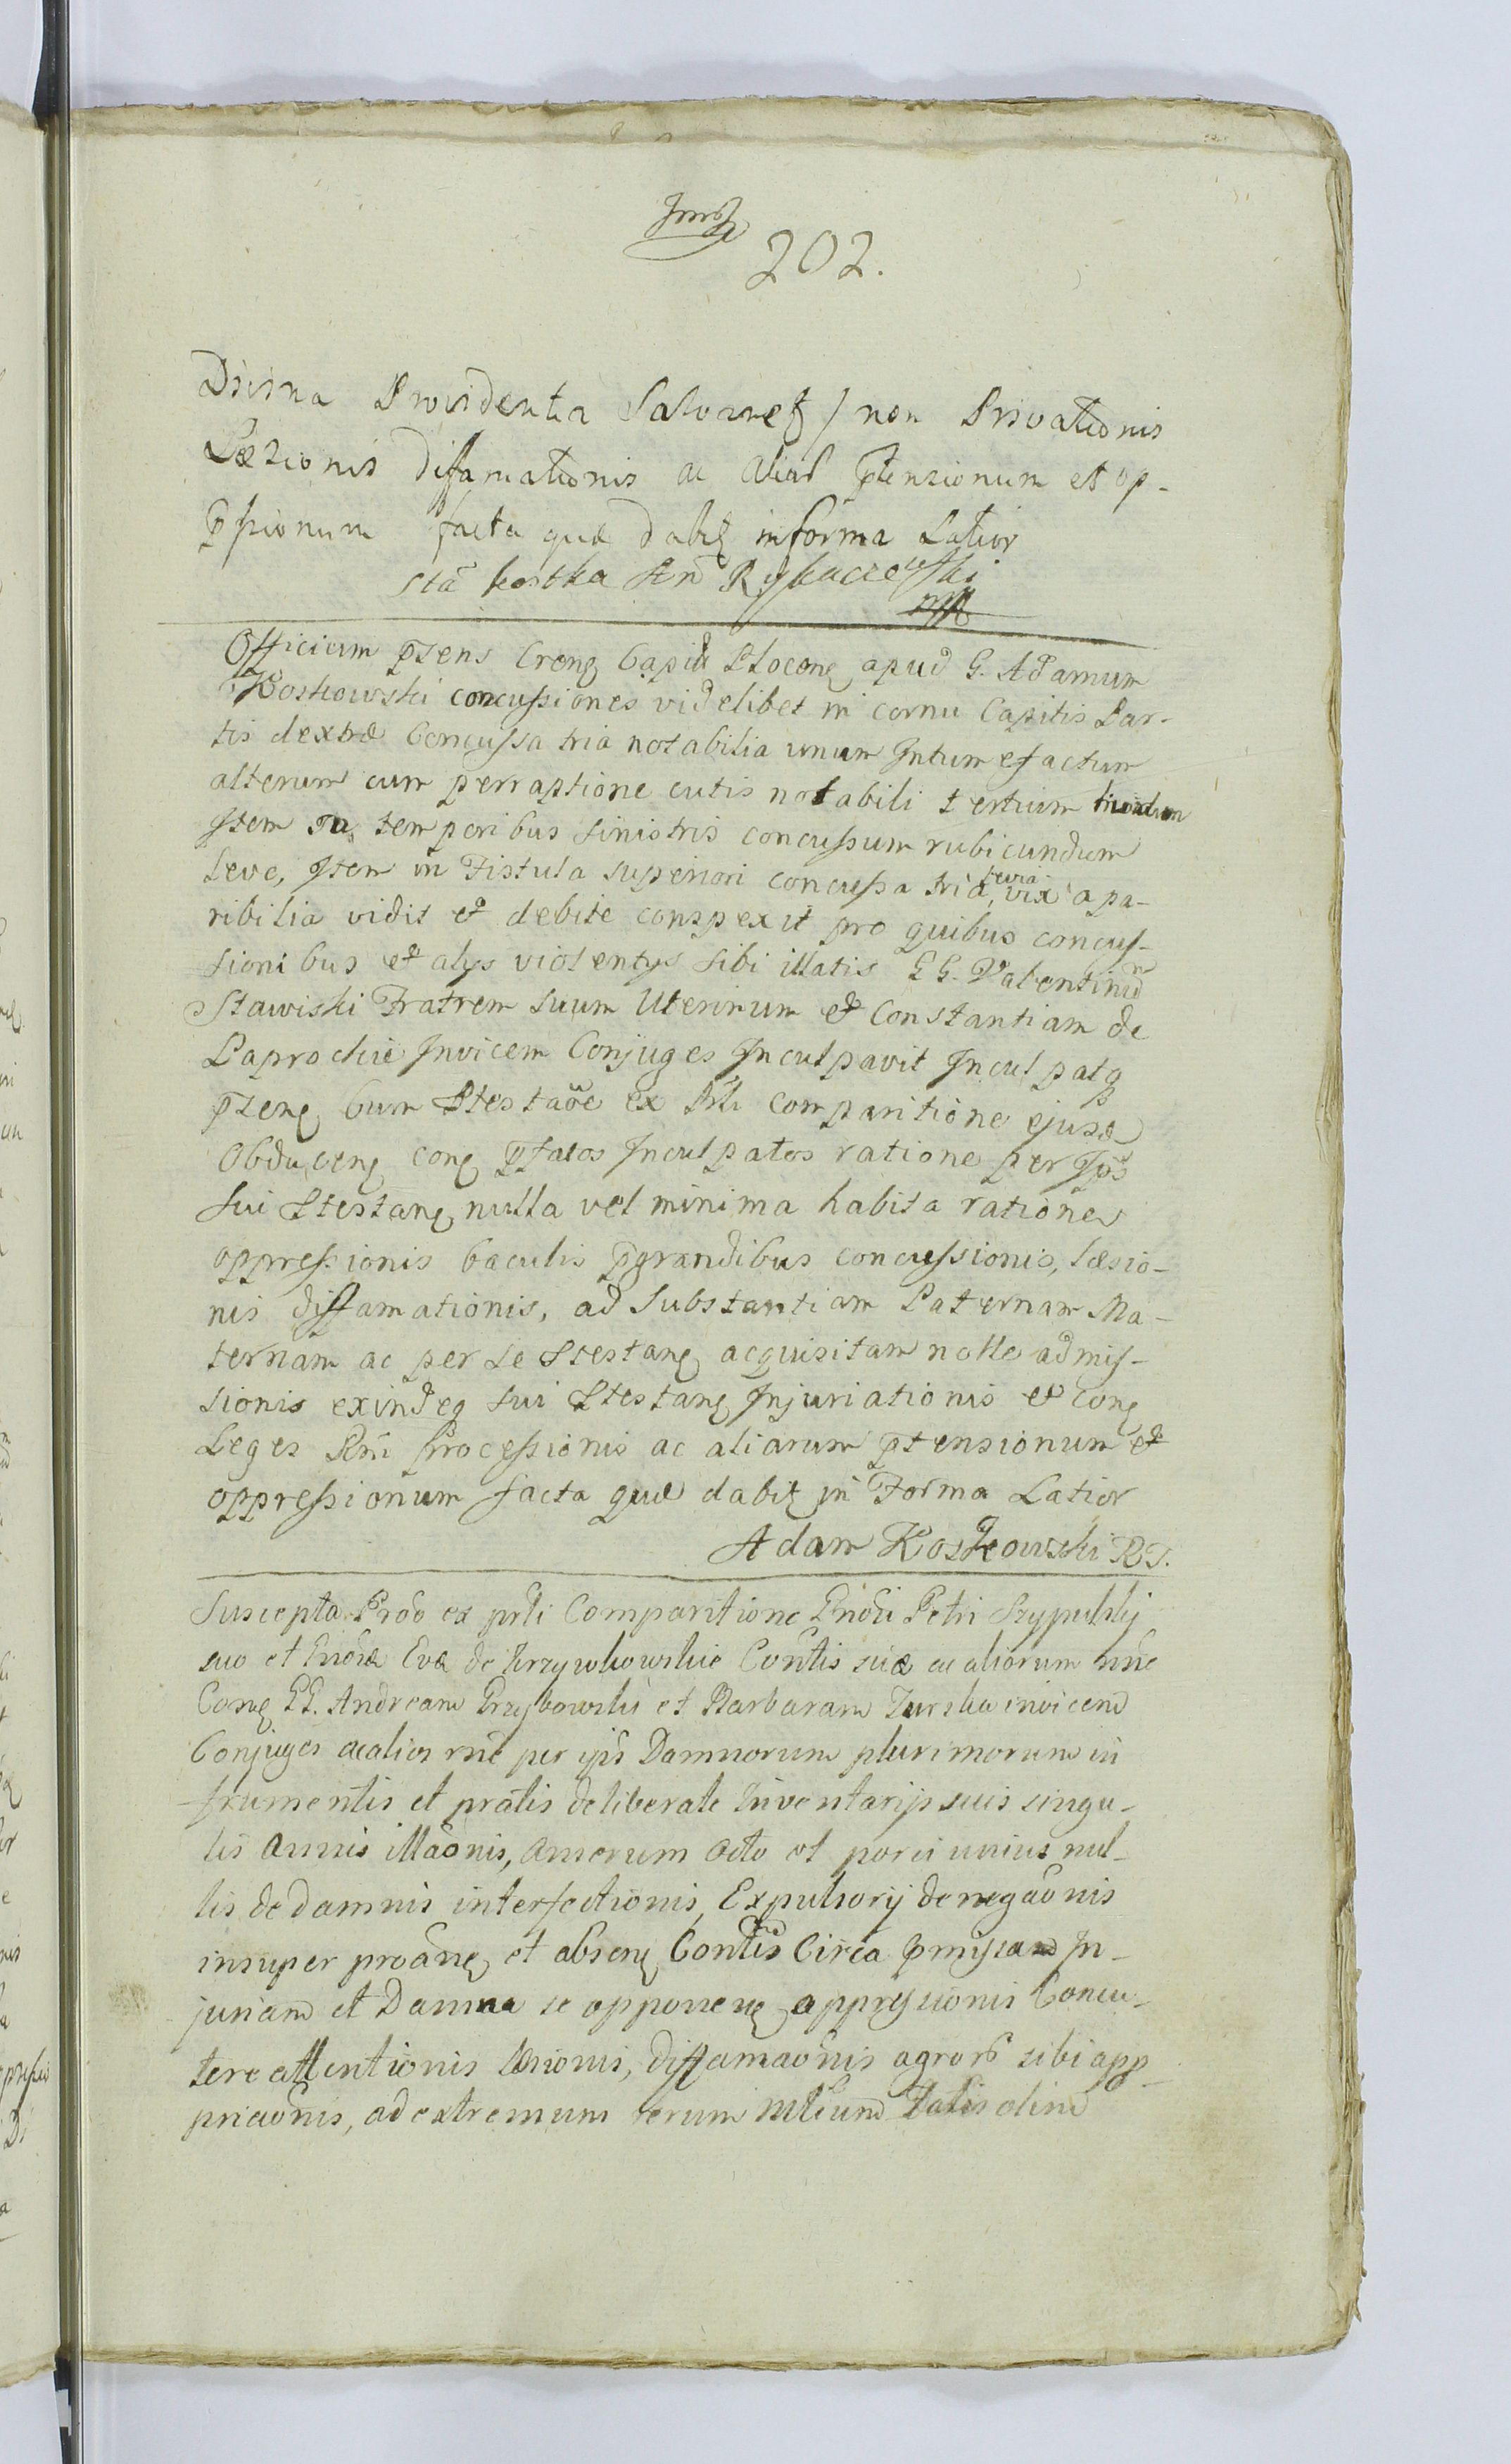 202.
Divina Providentia Salvaret) non Privationis
Læzionis diffamationis ac aliar ptenzionum et op-
pssionum facta quæ dabit in forma Latior
Sta Kostka An Rybaczewski
mp
Officium pzens Crens Capit Plocens apud G. Adamum
Koskowski concussiones videlibet in cornu Capitis Par-
tis dextræ Concussa tria notabilia unum Intumefactum
alterum cum perraptione cutis notabili tertium lividum
Item in temporibus sinistris concussum rubicundum
Leve, Item in Fistula superiori concussa tria levia, vix apa-
ribilia vidit et debite conspexit pro quibus concus-
sionibus et alys violentys sibi illatis GG. Valentinum
Stawiski Fratrem suum Uterinum et Constantiam de
Paprockie Invicem Conjuges Inculpavit Inculpatq
pzens Cum Ptestaõe ex prli comparitione ejusd
Obducens cons pfatos Inculpatos ratione per Ipõs
sui Ptestans nulla vel minima habita ratione
oppressionis baculis pgrandibus concussionis, læsio-
nis diffamationis, ad Substantiam Paternam Ma-
ternam ac per se Ptestans acquisitam nolle admis-
sionis exindeq sui Ptestans Injuriationis et cons
Leges Rni processionis ac aliarum ptensionum et
oppressionum facta quæ dabit in Forma Latior
Adam Koskowski RT.
Suscepta Prõo ex prli Comparitione Gnõsi Petri Szypulskj
suo et Gnõsæ Evæ de Krzywkowskie Contlis suæ ac aliorum nne
Cons GG. Andream Grzybowski et Barbaram Turska invicem
Conjuges ac alios rne per ipõs Damnorum plurimorum in
frumentis et pratis deliberate Inventarijs suis singu-
lis annis illaõnis, anserum octo et porci unius nul-
lis de damnis interfectionis, Expulsorij denegaõnis
insuper proãne et absens Contlis Circa pmissam In-
juriam et Damna se opponens oppressionis Concu-
tere attentionis læsionis, diffamaõnis agror sibi app-
priaõnis, ad extremum rerum olim